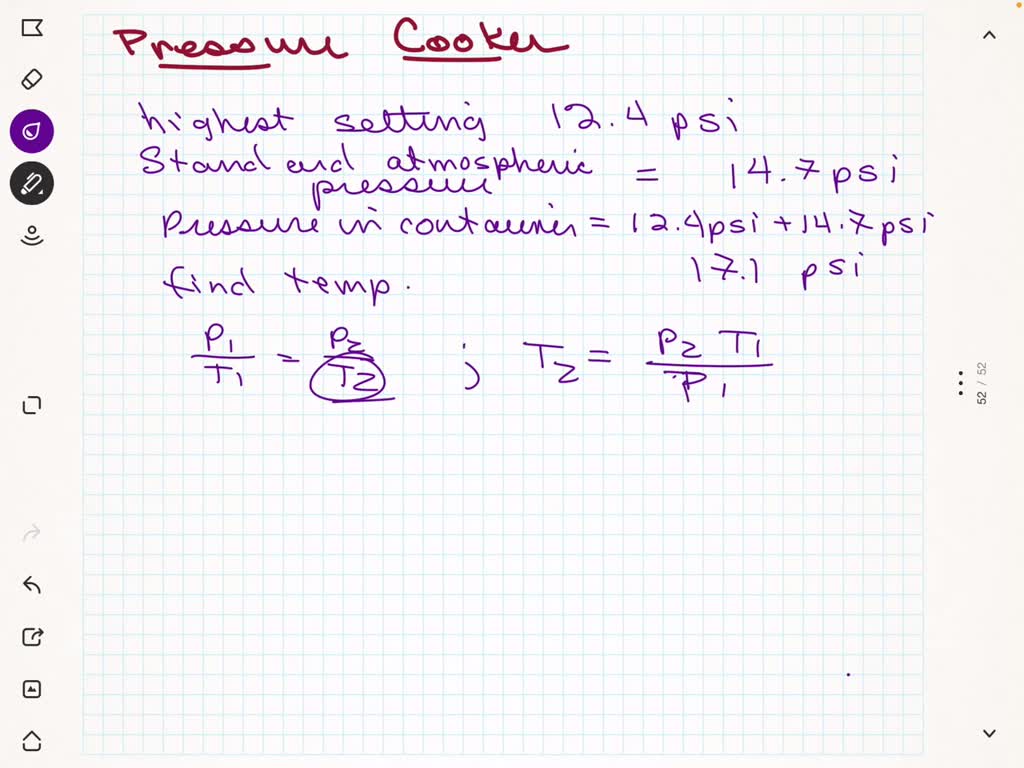 Pressure Cooker
highest setting 12.4 psi
Standard atmospheric pressure = 14.7 psi
Pressure in container = 12.4 psi + 14.7 psi
17.1 psi
find temp.
P1/T1 = P2/T2 ; T2 = P2 T1/P1
52 / 52